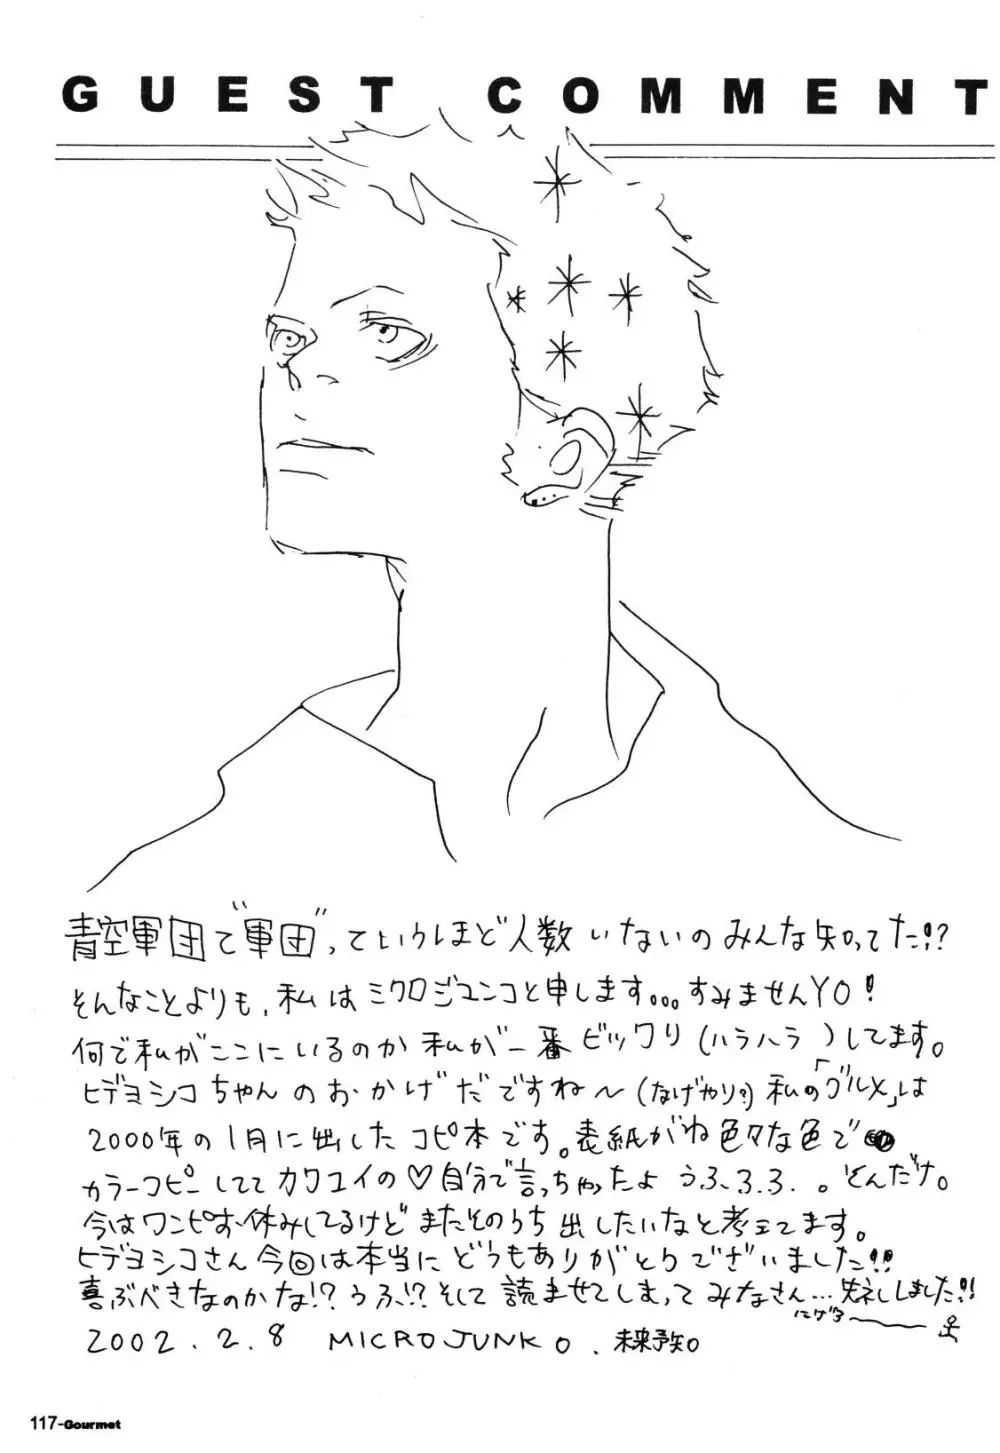 GUEST COMMENT
青空軍団で"軍団"っていうほど人数いないのみんな知ってた!?
そんなことよりも、私はミクロジュンコと申します。。。すみませんYO!
何で私がここにいるのか私が一番ビックリ(ハラハラ)してます。
ヒデヨシコちゃんのおかげだですね〜(なげやり?)私の「グルメ」は
2000年の1月に出したコピ本です。表紙がね色々な色で
カラーコピーしててカワユイの♡自分で言っちゃったよ うふ、ろ、ろ、。どんだけ。
今はワンピお休みしてるけどまたそのうち出したいなと考えてます。
ヒデヨシコさん今回は本当にどうもありがとうございました!!
喜ぶべきなのかな!?うふ!?そして読ませてしまってみなさん…失礼しました!!
にげる
2002.2.8 MICROJUNKO.
117-Gourmet